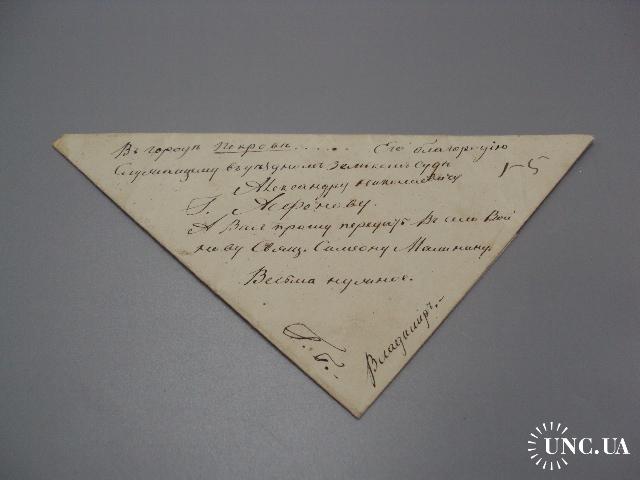 Въ городъ Покровъ . . . . . Его благородію
Служащему въ уѣздномъ Земскомъ Судѣ
Александру Николаевичу
Г. Агафонову.
А Васъ прошу передать въ село Вои
нову Свящ. Симеону Малинину.
Весьма нужное.
Владиміръ.
UNC.UA